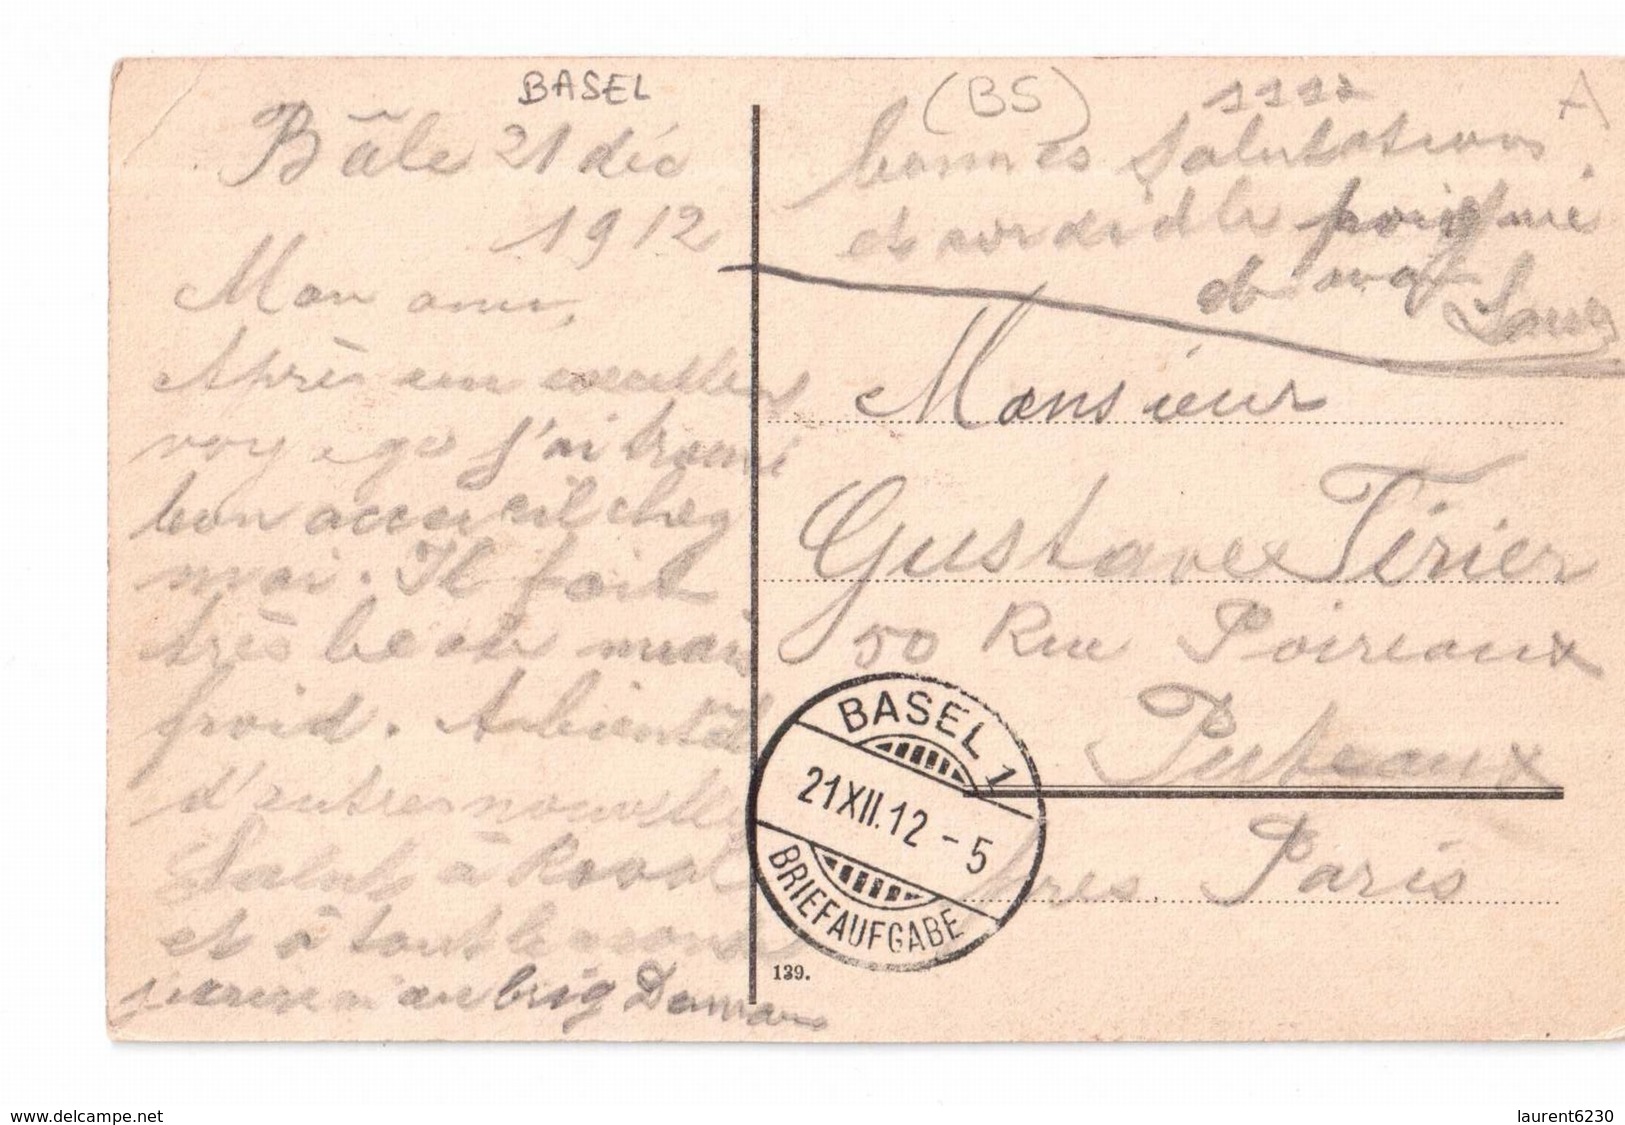 BASEL
Bâle 21 déc
1912
Mon ami,
Après un excellen
voyage j'ai trouvé
bon accueil chez
moi. Il fait
très beau mais
froid. A bientôt
d'autres nouvelles
Saluts à
et à tout le monde
(BS)
A
bonnes Salutations
et cordiale poignée
et
Monsieur
Gustave Tirier
50 Rue Poireaux
Puteaux
près Paris
BASEL 1
21.XII.12-5
BRIEFAUFGABE
139.
www.delcampe.net
laurent6230